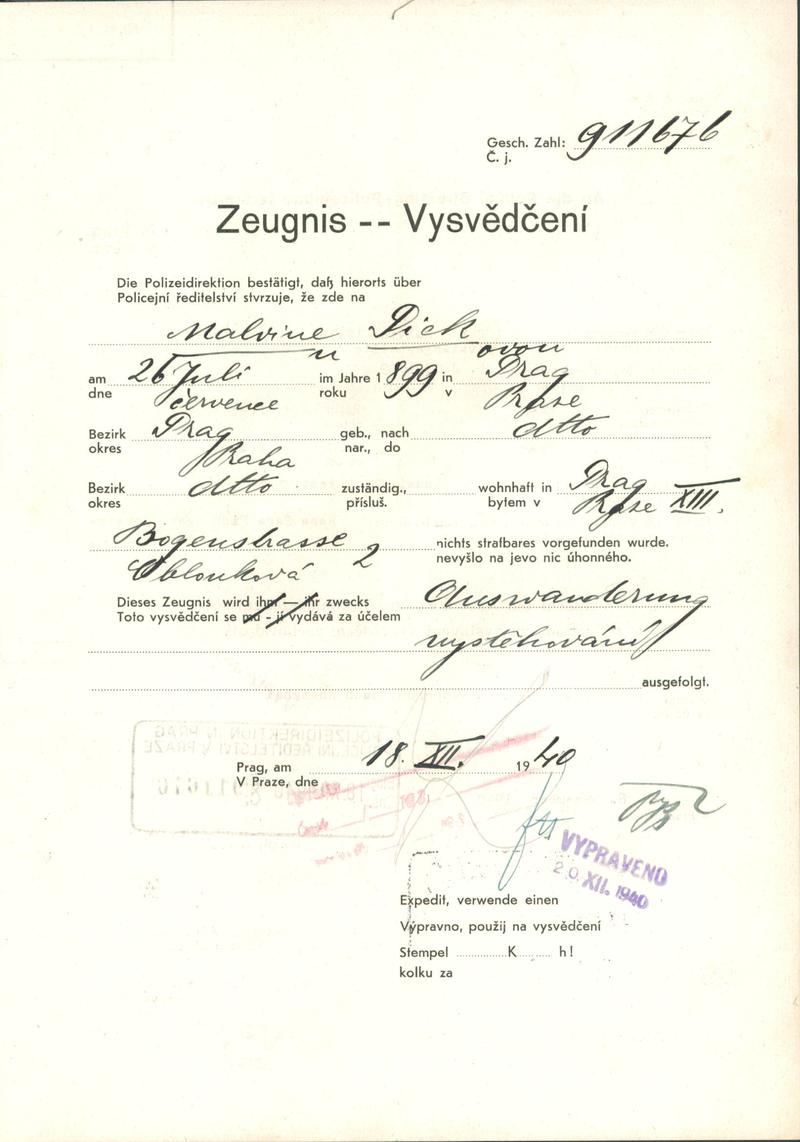 Gesch. Zahl: 911676
Č. j.
Zeugnis -- Vysvědčení
Die Polizeidirektion bestätigt, daß hierorts über
Policejní ředitelství stvrzuje, že zde na
Malvine Pick
u ovou
am 26 Juli im Jahre 1899 in Prag
dne července roku v Praze
Bezirk Prag geb., nach dtto
okres Praha nar., do
Bezirk dtto zuständig., wohnhaft in Prag
okres přísluš. bytem v Praze XIII.
Bogenstrasse 2 nichts strafbares vorgefunden wurde.
Oblouková nevyšlo na jevo nic úhonného.
Dieses Zeugnis wird ihm — ihr zwecks Auswanderung
Toto vysvědčení se mu - jí vydává za účelem
vystěhování
ausgefolgt.
Prag, am 18. XII. 1940
V Praze, dne
VYPRAVENO
20. XII. 1940
Expedit, verwende einen
Výpravno, použij na vysvědčení
Stempel K h!
kolku za